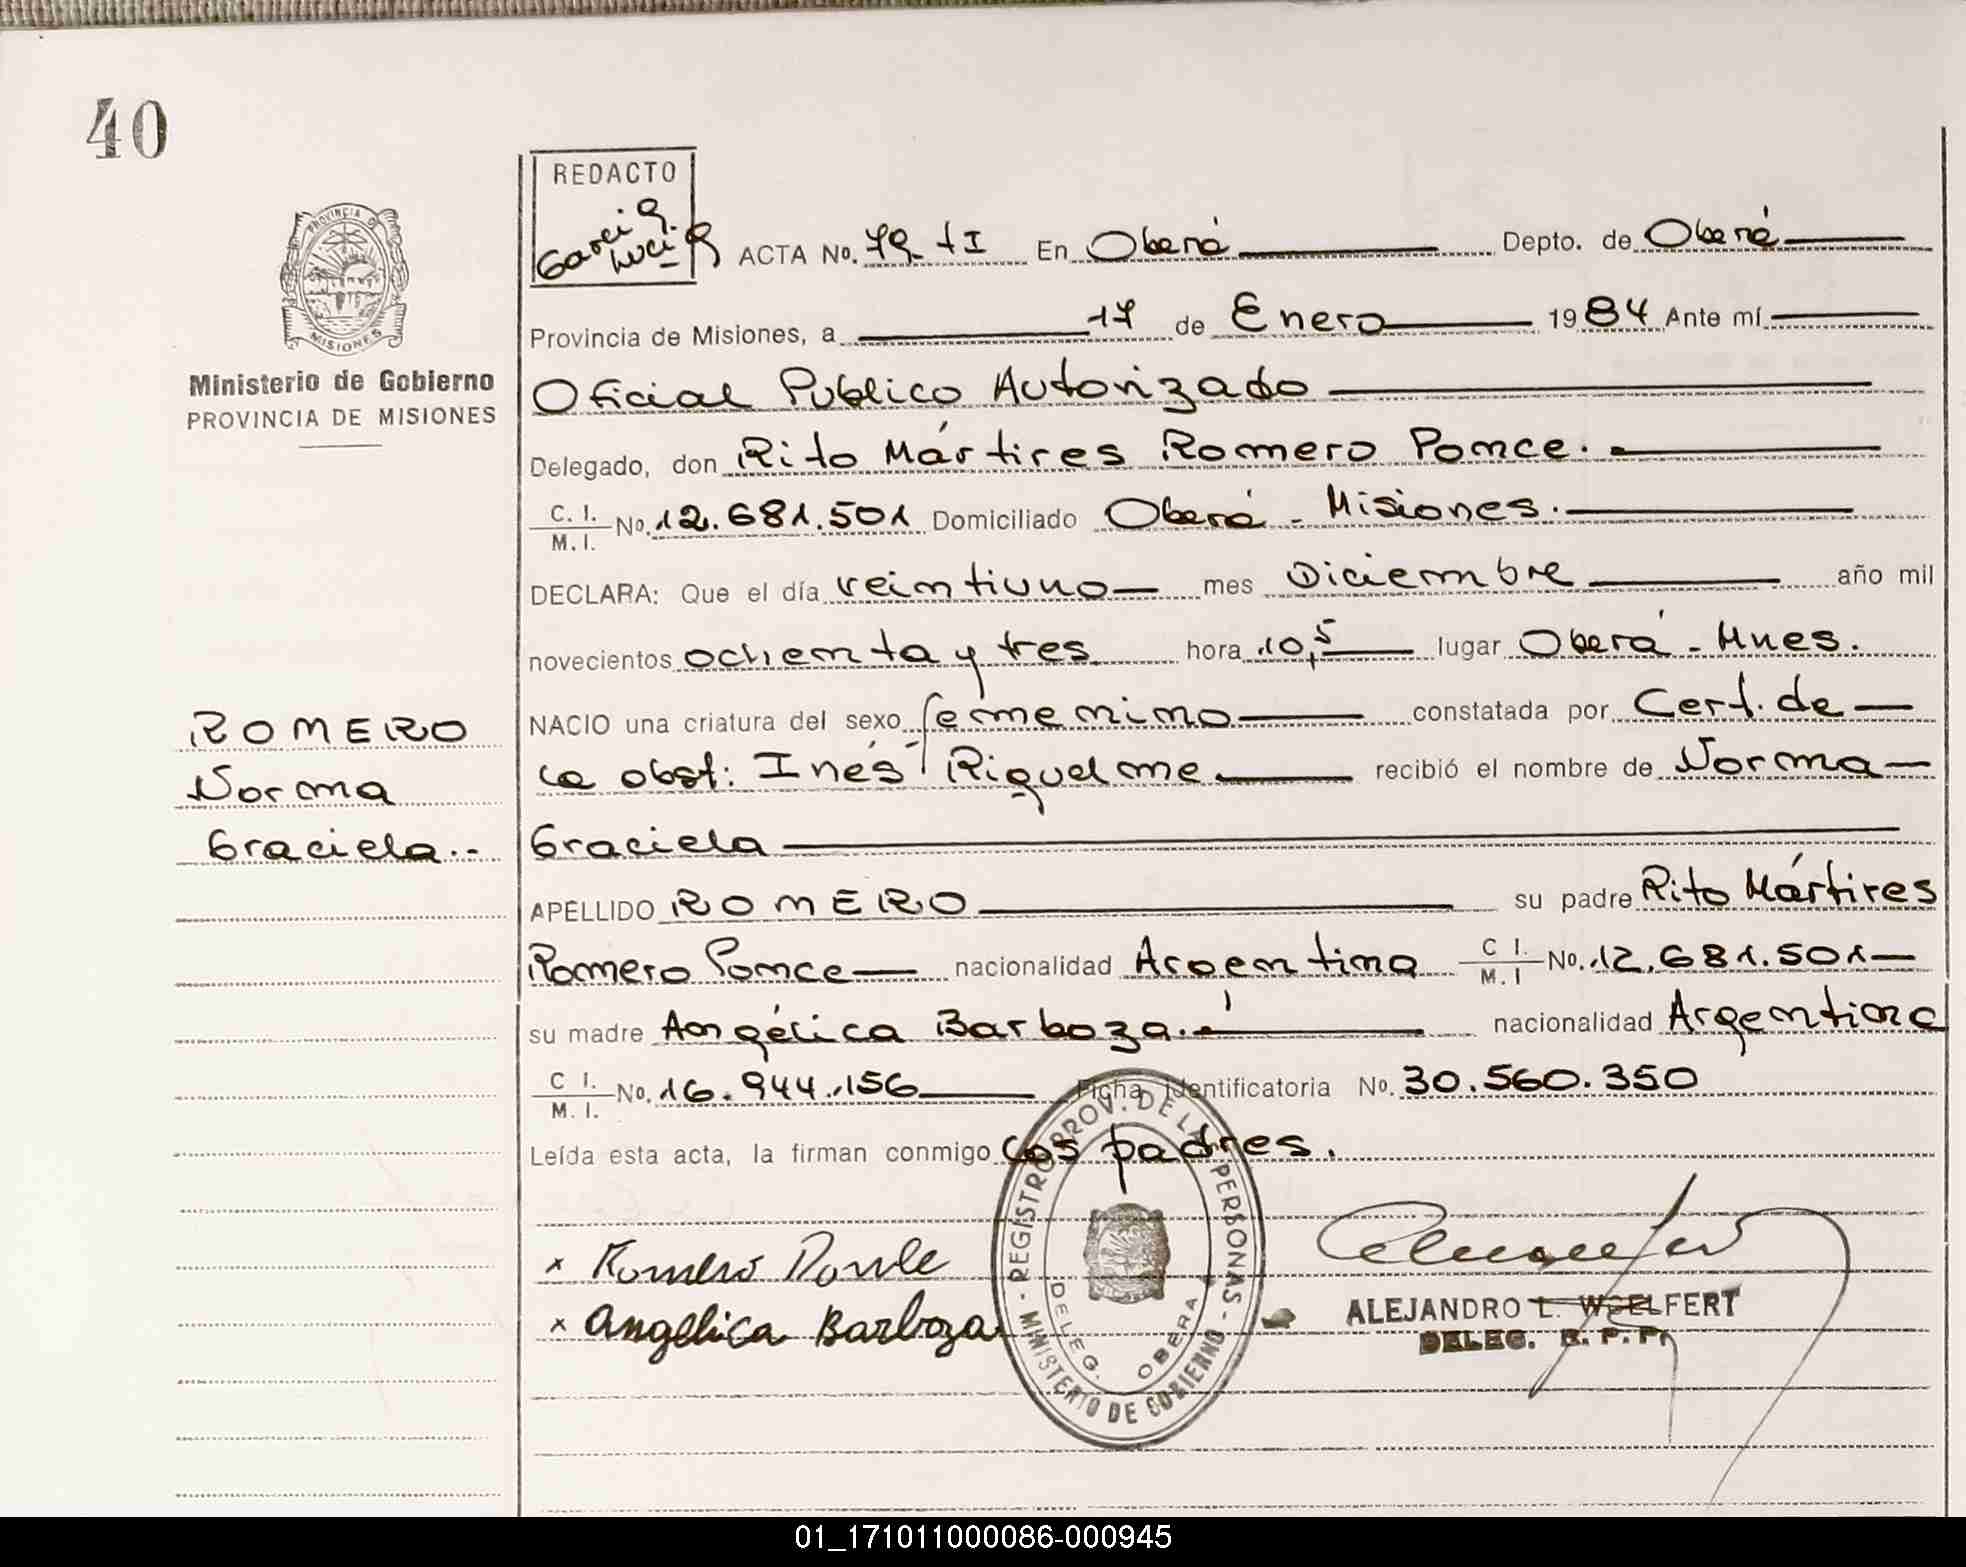 40
REDACTO
Garcia
Lucia
ACTA No. 79 tI En Oberá Depto. de Oberá
Provincia de Misiones, a 17 de Enero 1984 Ante mí
PROVINCIA DE
MISIONES
Ministerio de Gobierno
PROVINCIA DE MISIONES
Oficial Publico Autorizado
Delegado, don Rito Mártires Romero Ponce.
C. I.
M. I. No. 12.681.501 Domiciliado Oberá - Misiones.
DECLARA: Que el día veintiuno mes Diciembre año mil
novecientos ochenta y tres hora 10,5 lugar Oberá - Mnes.
NACIO una criatura del sexo femenino constatada por Cert. de
la obst: Inés Riquelme recibió el nombre de Norma
Graciela
ROMERO
Norma
Graciela..
APELLIDO ROMERO su padre Rito Mártires
Romero Ponce nacionalidad Argentina C I. M. I No. 12.681.501
su madre Angélica Barboza. nacionalidad Argentina
C I.
M. I. No. 16.944.156 Ficha Identificatoria No. 30.560.350
Leída esta acta, la firman conmigo los padres.
x Romero Ponce
x Angelica Barboza
REGISTRO PROV. DE LAS PERSONAS - MINISTERIO DE GOBIERNO -
DELEG. OBERA
ALEJANDRO L. WOELFERT
DELEG. R. P. P.
01_171011000086-000945